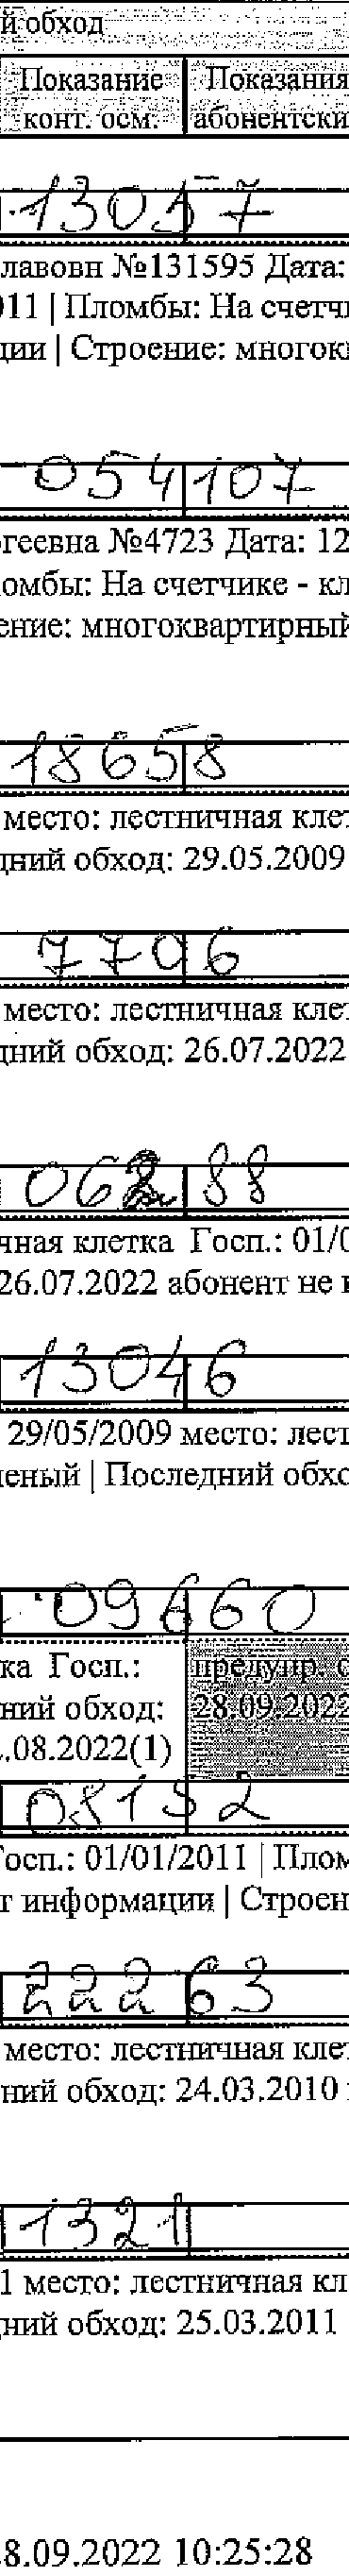 й обход
Показание Показания
конт. осм. абонентски
13057
лавовн №131595 Дата:
011 | Пломбы: На счетч
ции | Строение: многокв
054107
геевна №4723 Дата: 12
омбы: На счетчике - кл
ение: многоквартирный
18658
место: лестничная клет
дний обход: 29.05.2009
7706
место: лестничная клет
дний обход: 26.07.2022
06288
чная клетка Госп.: 01/0
26.07.2022 абонент не в
13046
29/05/2009 место: лест
ченый | Последний обхо
09660
ка Госп.: предупр. о
ний обход: 28.09.2022
.08.2022(1)
08132
Госп.: 01/01/2011 | Плом
т информации | Строен
22263
место: лестничная клет
ний обход: 24.03.2010
1321
1 место: лестничная кл
дний обход: 25.03.2011
8.09.2022 10:25:28